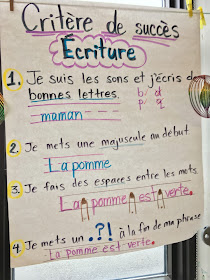 Critère de succès
Écriture
1. Je suis les sons et j'écris de
bonnes lettres. b d
p q
maman
2. Je mets une majuscule au début.
La pomme
3. Je fais des espaces entre les mots.
La pomme est verte.
4. Je mets un .?! à la fin de ma phrase
La pomme est verte.